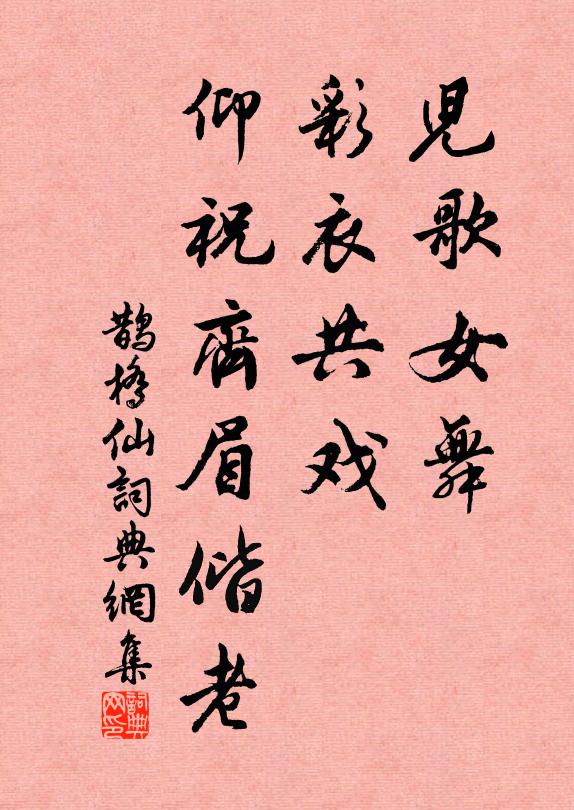 兒歌女舞
彩衣共戏
仰祝齊眉偕老
鵲橋仙詞典網集
詞典
网印